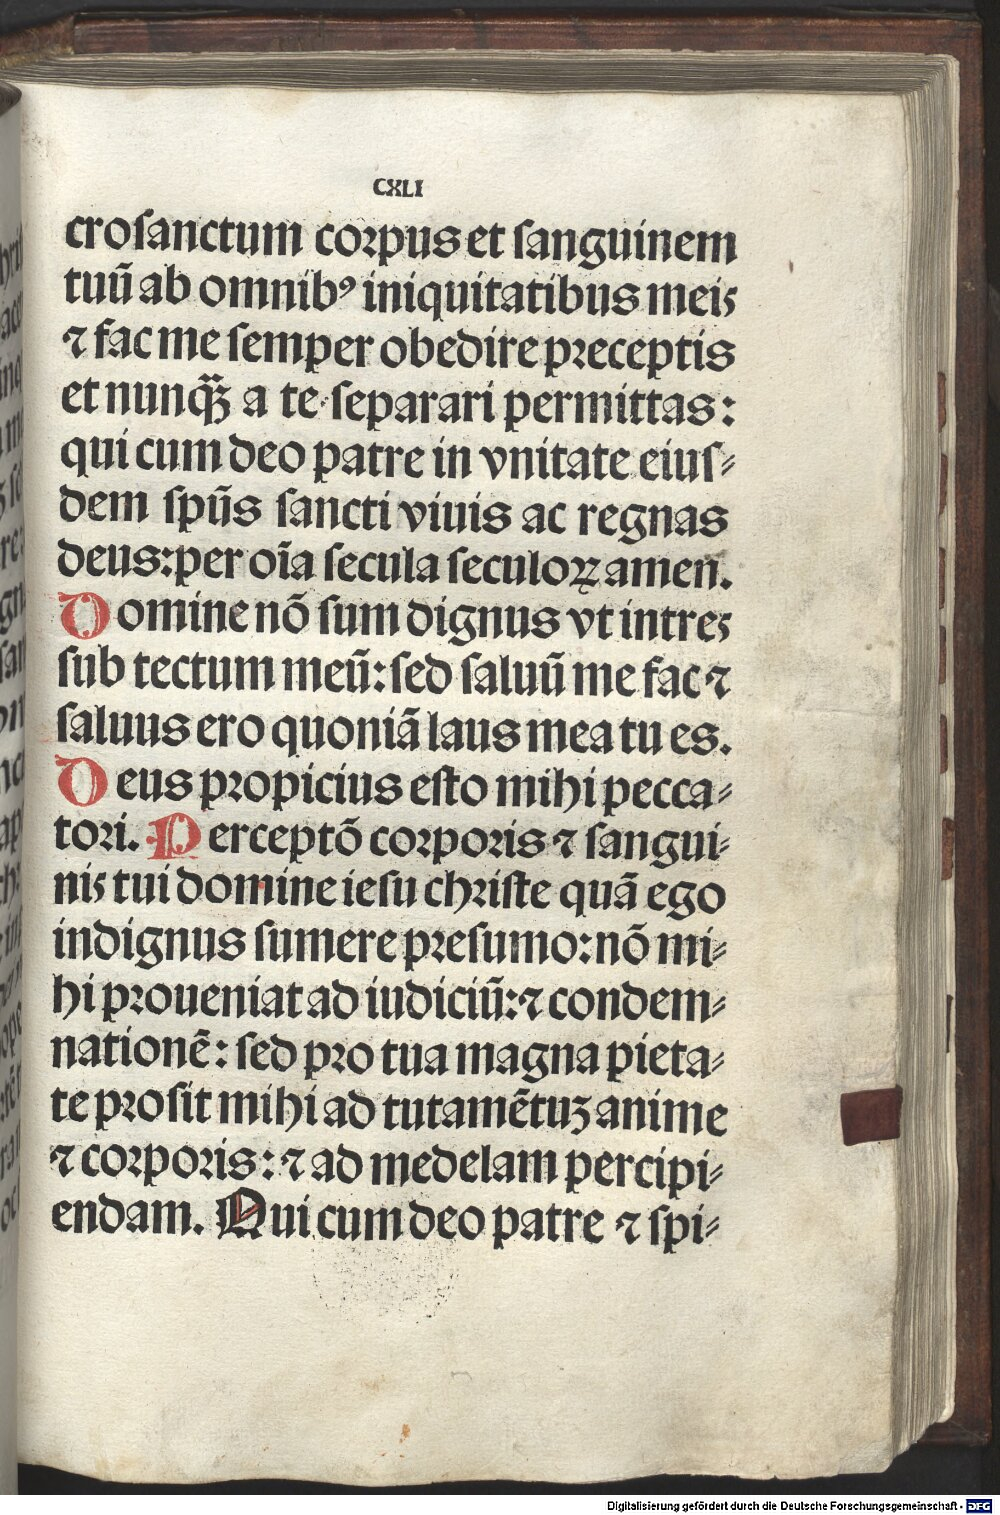 CXLI
croſanctum corpus et ſanguinem
tuū ab omnibꝰ iniquitatibus meis
⁊ fac me ſemper obedire preceptis
et nunqꝫ̄ a te ſeparari permittas:
qui cum deo patre in vnitate eiuſ⸗
dem ſpūs ſancti viuis ac regnas
deus: per oīa ſecula ſeculoꝝ amen.
Domine nō ſum dignus vt intres
ſub tectum meū: ſed ſaluū me fac ⁊
ſaluus ero quoniā laus mea tu es.
Deus propicius eſto mihi pecca⸗
tori. Perceptō corporis ⁊ ſangui⸗
nis tui domine ieſu chriſte quā ego
indignus ſumere preſumo: nō mi⸗
hi proueniat ad iudiciū: ⁊ condem⸗
nationē: ſed pro tua magna pieta⸗
te proſit mihi ad tutamētuꝫ anime
⁊ corporis: ⁊ ad medelam percipi⸗
endam. Qui cum deo patre ⁊ ſpi⸗
Digitalisierung gefördert durch die Deutsche Forschungsgemeinschaft - DFG